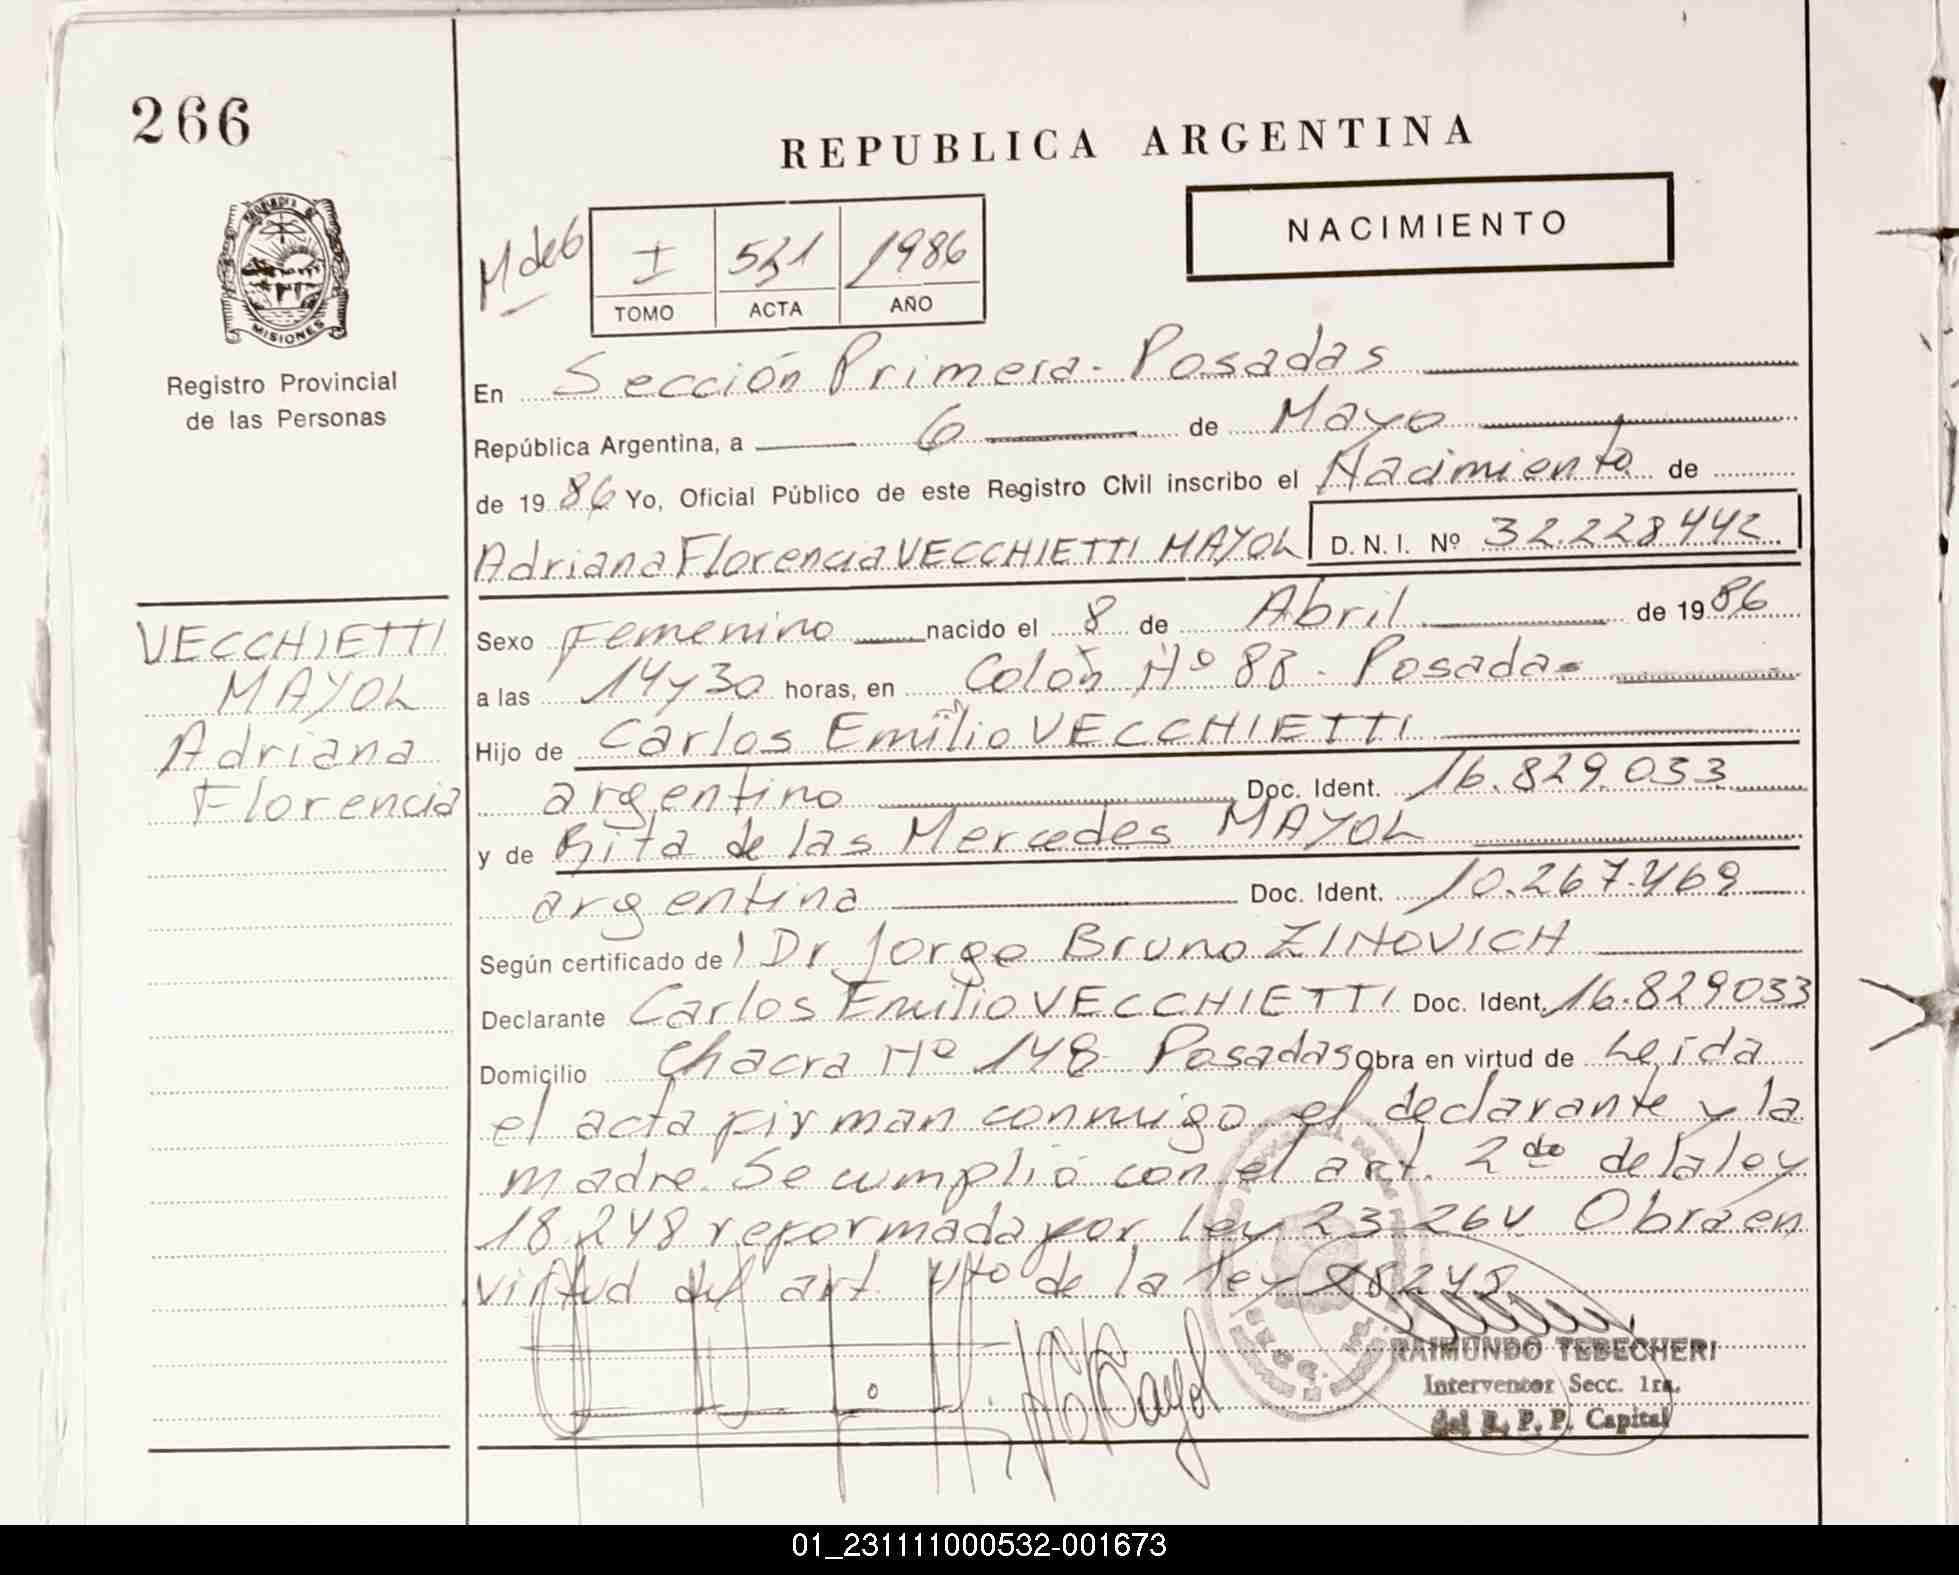 266
REPUBLICA ARGENTINA
NACIMIENTO
M de 6
I 531 1986
TOMO ACTA AÑO
MISIONES
Registro Provincial
de las Personas
En Sección Primera - Posadas
República Argentina, a 6 de Mayo
de 1986 Yo, Oficial Público de este Registro Civil inscribo el Nacimiento de
Adriana Florencia VECCHIETTI MAYOL D. N. I. Nº 32.228.442
VECCHIETTI
MAYOL
Adriana
Florencia
Sexo Femenino nacido el 8 de Abril de 1986
a las 14 y 30 horas, en Colón Nº 88 - Posadas
Hijo de Carlos Emilio VECCHIETTI
argentino Doc. Ident. 16.829.033
y de Rita de las Mercedes MAYOL
argentina Doc. Ident. 10.267.469
Según certificado del Dr Jorge Bruno ZINOVICH
Declarante Carlos Emilio VECCHIETTI Doc. Ident. 16.829033
Domicilio Chacra Nº 148 Posadas Obra en virtud de Leida
el acta firman conmigo el declarante y la
madre. Se cumplió con el art. 2do de la ley
18.248 reformada por ley 23.264. Obra en
virtud del art. 4to de la ley 18248
Mayol
RAIMUNDO TEBECHERI
Interventor Secc. 1ra.
del R. P. P. Capital
01_231111000532-001673